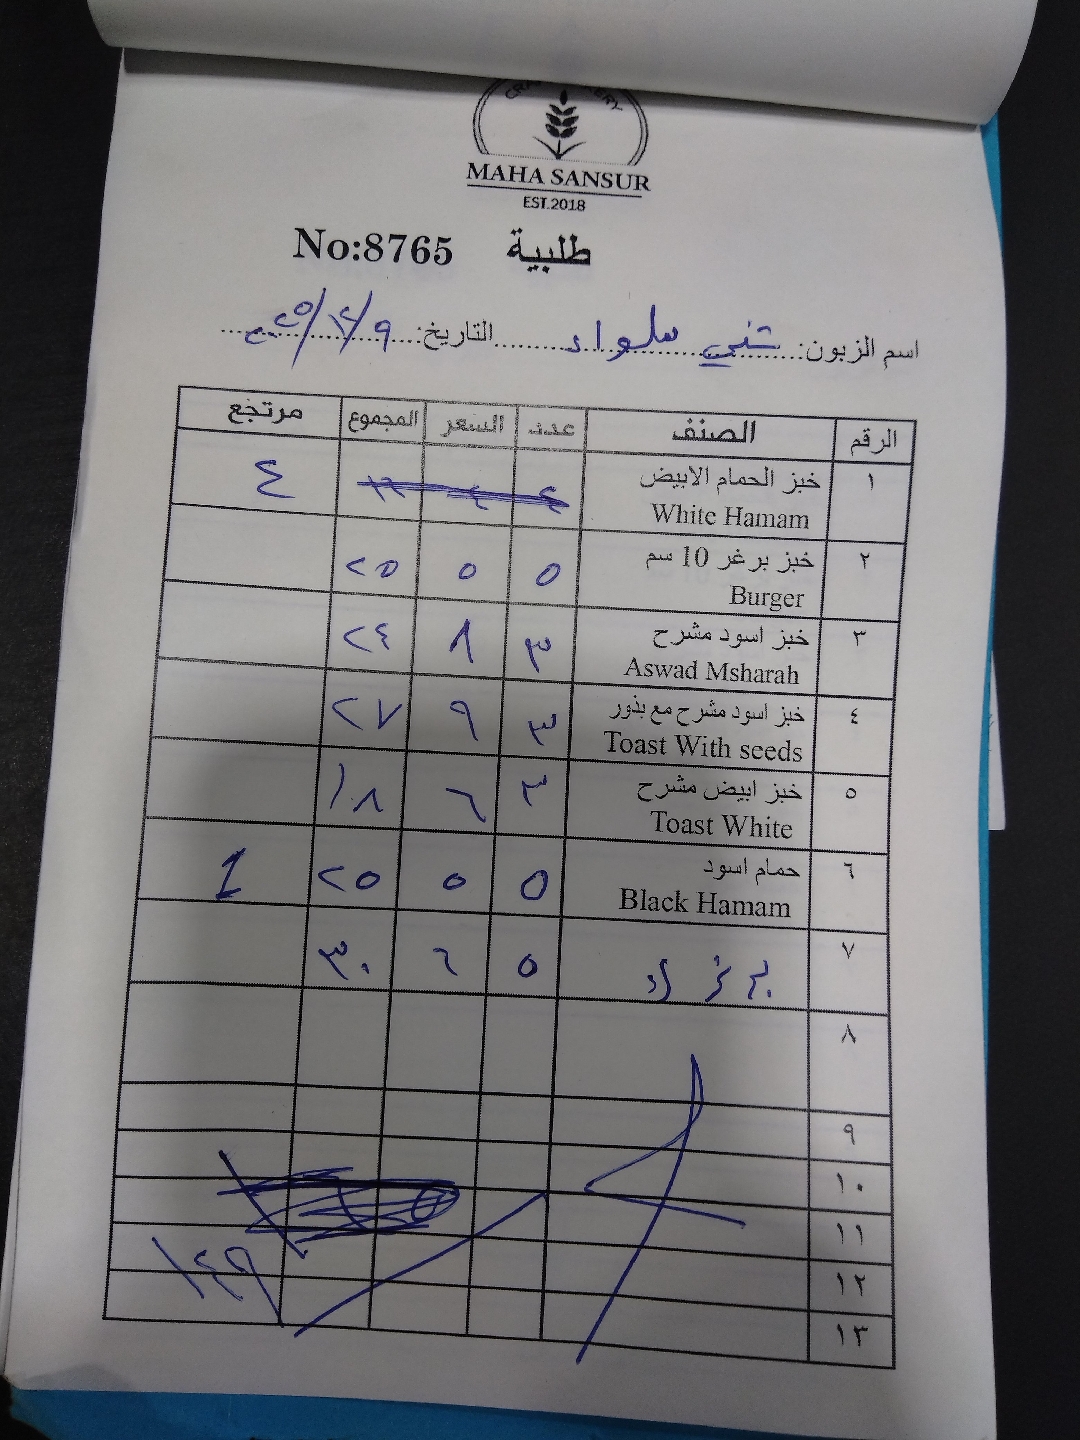 MAHA SANSUR
EST.2018
No:8765 طلبية
اسم الزبون: سلواد التاريخ: ٩/١٢/٢٠٢٥
الرقم الصنف عدد السعر المجموع مرتجع
١ خبز الحمام الابيض ٤
White Hamam
٢ خبز برغر 10 سم ٥ ٥ ٢٥
Burger
٣ خبز اسود مشرح ٣ ٨ ٢٤
Aswad Msharah
٤ خبز اسود مشرح مع بذور ٣ ٩ ٢٧
Toast With seeds
٥ خبز ابيض مشرح ٣ ٦ ١٨
Toast White
٦ حمام اسود ٥ ٥ ٢٥ 1
Black Hamam
٧ ٥ ٦ ٣٠
٨
٩
١٠
١١
١٢ ١٤٩
١٣